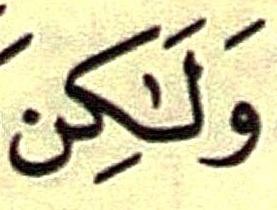 وَلَـٰكِن